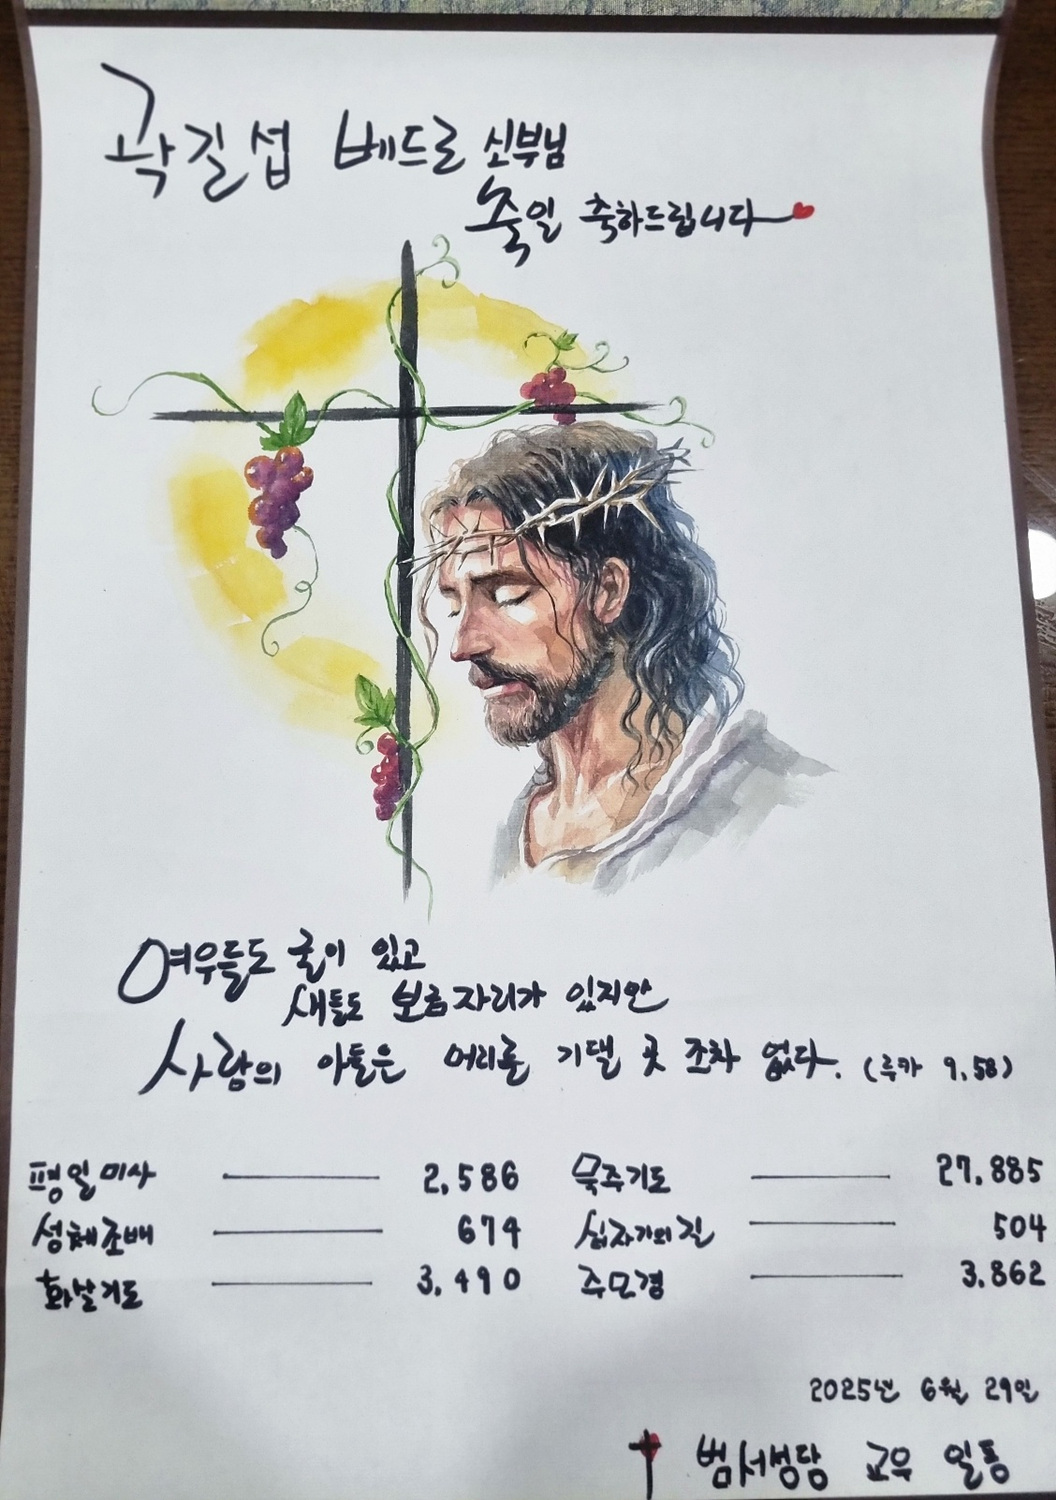 곽길섭 베드로 신부님
축일 축하드립니다
여우들도 굴이 있고
새들도 보금자리가 있지만
사람의 아들은 머리를 기댈 곳 조차 없다. (루카 9,58)
평일미사 2,586 묵주기도 27,885
성체조배 674 십자가의 길 504
화살기도 3,490 주모경 3,862
2025년 6월 29일
범서성당 교우 일동